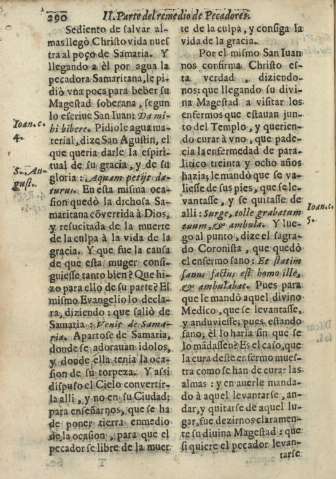 290 II. Parte del remedio de Pecadores.
Sediento de salvar al-
mas llegò Christo vida nues
tra al poço de Samaria. Y
llegando à èl por agua la
pecadora Samaritana, le pi-
diò vna poca para beber su
Magestad soberana, segun
lo escrive San Iuan: Da mi-
hi bibere. Pidiole agua ma-
terial, dize San Agustin, el
que queria darle la espiri-
tual de su gracia, y de su
gloria: Aquam petijt da-
turus. En esta misma oca-
sion quedò la dichosa Sa-
maritana cõvertida à Dios,
y resucitada de la muerte
de la culpa à la vida de la
gracia. Y que fue la causa
de que esta muger consi-
guiesse tanto bien? Que hi-
zo para ello de su parte? El
mismo Evangelio lo decla-
ra, diziendo: que saliò de
Samaria: Venit de Sama-
ria. Apartose de Samaria,
donde se adorauan idolos,
y donde ella tenia la oca-
sion de su torpeza. Y assi
dispuso el Cielo convertir-
la alli, y no en su Ciudad;
para enseñarnos, que se ha
de poner tierra enmedio
de la ocasion, para que el
pecador se libre de la muer
Ioan. c.
4.
S. Au-
gust.
te de la culpa, y consiga la
vida de la gracia.
Por el mismo San Iuan
nos confirma Christo es-
ta verdad, diziendo-
nos: que llegando su divi-
na Magestad a visitar los
enfermos que estauan jun-
to del Templo, y querien-
do curar à vno, que pade-
cia la enfermedad de para-
litico treinta y ocho años
hazia; le mandò que se va-
liesse de sus pies, que se le-
vantasse, y se quitasse de
alli: Surge, tolle grabatum
tuum, & ambula. Y lue-
go al punto, dize el sagra-
do Coronista, que quedò
el enfermo sano: Et statim
sanus factus est homo ille,
& ambulabat. Pues para
que le mandò aquel divino
Medico, que se levantasse,
y anduviesse; pues estando
sano, èl lo haria sin que se
lo mãdassen? Es el caso, que
la cura deste enfermo muestra
como se han de curar las
almas: y en auerle manda-
do à aquel levantarse, an-
dar, y quitarse de aquel lu-
gar, fue dezirnos claramen-
te su divina Magestad: que
si quiere el pecador levan-
tarse
Ioan. c.
5.